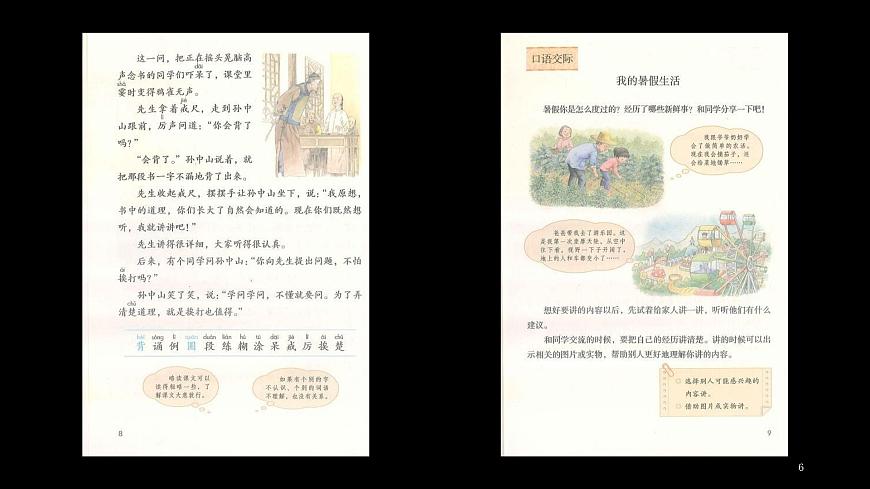 这一问，把正在摇头晃脑高
声念书的同学们吓呆了，课堂里
霎时变得鸦雀无声。
先生拿着戒尺，走到孙中
山跟前，厉声问道：“你会背了
吗？”
“会背了。”孙中山说着，就
把那段书一字不漏地背了出来。
先生收起戒尺，摆摆手让孙中山坐下，说：“我原想，
书中的道理，你们长大了自然会知道的。现在你们既然想
听，我就讲讲吧！”
先生讲得很详细，大家听得很认真。
后来，有个同学问孙中山：“你向先生提出问题，不怕
挨打吗？”
孙中山笑了笑，说：“学问学问，不懂就要问。为了弄
清楚道理，就是挨打也值得。”
bèi sòng lì quān duàn liàn hú tú dāi jiè lì ái chǔ
背 诵 例 圈 段 练 糊 涂 呆 戒 厉 挨 楚
略读课文可以
读得粗略一些，了
解课文大意就行。
如果有个别的字
不认识、个别的词语
不理解，也没有关系。
8
口语交际
我的暑假生活
暑假你是怎么度过的？经历了哪些新鲜事？和同学分享一下吧！
我跟爷爷奶奶学
会了做简单的农活。
现在我会摘茄子，还
会给菜地锄草……
爸爸带我去了游乐园。这
是我第一次坐摩天轮，从空中
往下看，视野一下子开阔了，
地上的人和车都变小了……
想好要讲的内容以后，先试着给家人讲一讲，听听他们有什么
建议。
和同学交流的时候，要把自己的经历讲清楚。讲的时候可以出
示相关的图片或实物，帮助别人更好地理解你讲的内容。
选择别人可能感兴趣的
内容讲。
借助图片或实物讲。
9
6